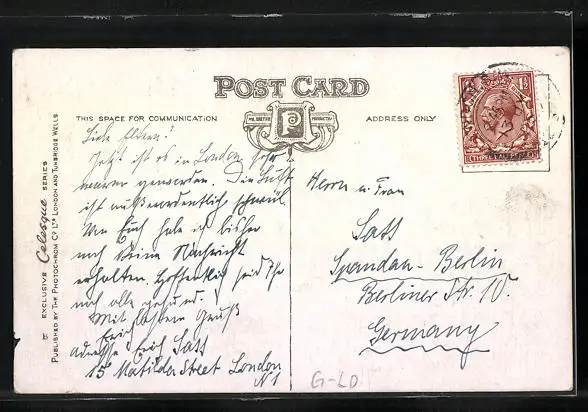 POST CARD
THIS SPACE FOR COMMUNICATION
ADDRESS ONLY
P
EXCLUSIVE Celesque SERIES
PUBLISHED BY THE PHOTOCHROM Co. LTD. LONDON AND TUNBRIDGE WELLS
Liebe Eltern!
Jetzt ist es in London sehr
warm geworden. Die Luft
ist außerordentlich schwül.
Von Euch habe ich bisher
noch keine Nachricht
erhalten. Hoffentlich seid Ihr
noch alle gesund.
Mit bestem Gruß
Erich
Adresse: Erich Sass
15 Matilda Street London
N1
Herrn u. Frau
Sass
Spandau - Berlin
Berliner Str. 10.
Germany
G-LD
1½